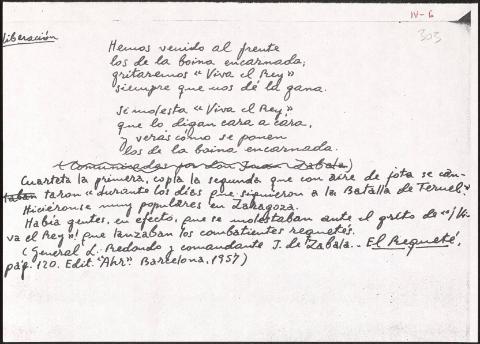 IV-6
303
liberación
Hemos venido al frente
los de la boina encarnada;
gritaremos "Viva el Rey"
siempre que nos dé la gana.
Si molesta "Viva el Rey",
que lo digan cara a cara,
y verás cómo se ponen
los de la boina encarnada.
(Comunicadas por don Juan Zabala)
Cuarteta la primera, copla la segunda que con aire de jota se can-
taban taron "durante los días que siguieron a la Batalla de Teruel."
Hiciéronse muy populares en Zaragoza.
Había gentes, en efecto, que se molestaban ante el grito de "¡Vi-
va el Rey"! que lanzaban los combatientes requetés.
(General L. Redondo y comandante J. de Zabala.- El Requeté,
pág. 120. Edit. "Ahr". Barcelona, 1957)